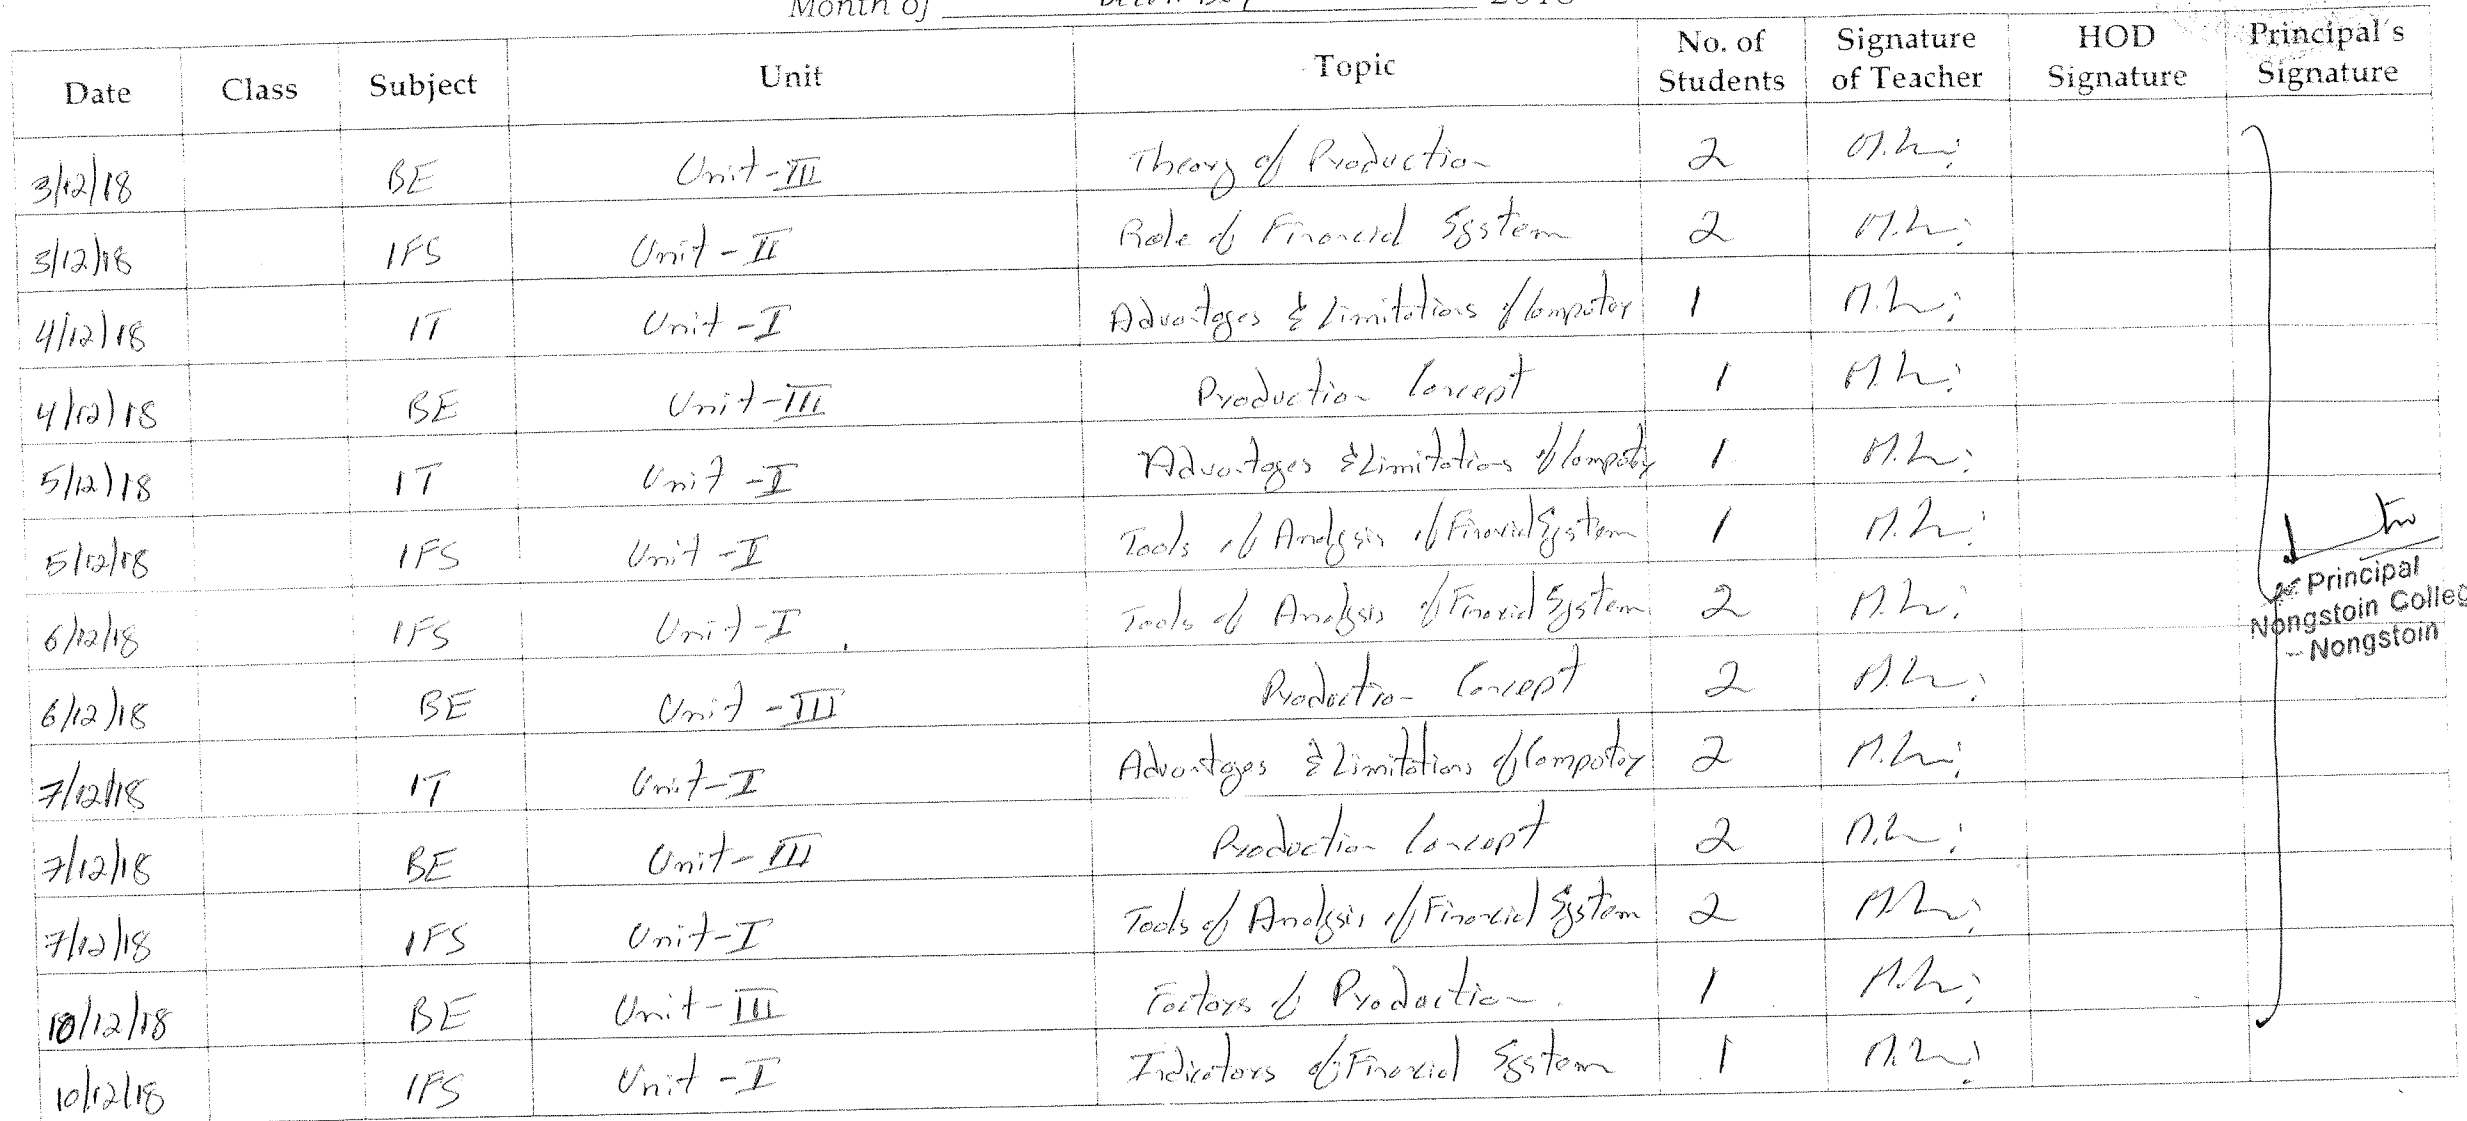 Month of December 2018
Date Class Subject Unit Topic No. of Students Signature of Teacher HOD Signature Principal's Signature
3/12/18 BE Unit-III Theory of Production 2
3/12/18 IFS Unit-II Role of Financial System 2
4/12/18 IT Unit-I Advantages & Limitations of Computer 1
4/12/18 BE Unit-III Production Concept 1
5/12/18 IT Unit-I Advantages & Limitations of Computer 1
5/12/18 IFS Unit-I Tools of Analysis of Financial System 1
6/12/18 IFS Unit-I Tools of Analysis of Financial System 2
6/12/18 BE Unit-III Production Concept 2
7/12/18 IT Unit-I Advantages & Limitations of Computer 2
7/12/18 BE Unit-III Production Concept 2
7/12/18 IFS Unit-I Tools of Analysis of Financial System 2
10/12/18 BE Unit-III Factors of Production 1
10/12/18 IFS Unit-I Indicators of Financial System 1
Principal
Nongstoin Colleg
Nongstoin